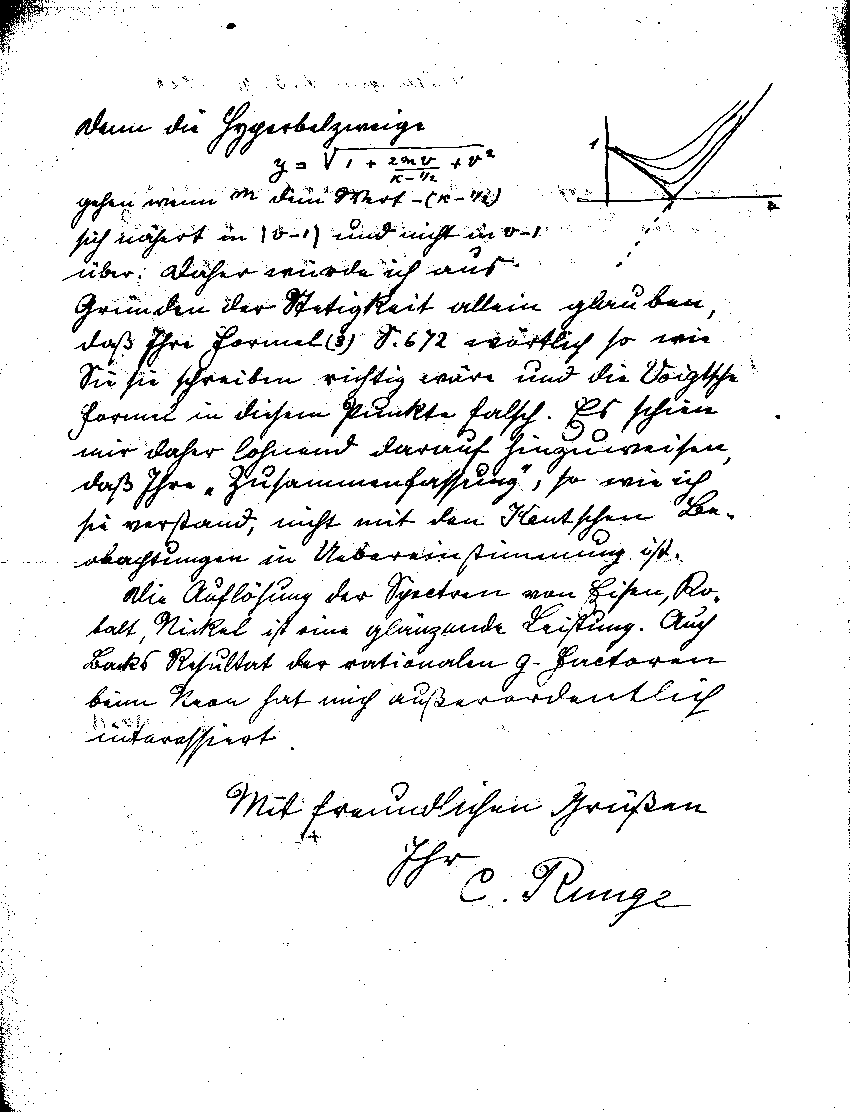 Denn die Hyperbelzweige
y = √(1 + 2mv/(k-1/2) + v²)
gehen wenn m dem Wert -(k-1/2)
sich nähert in |v-1| und nicht in v-1
über. Daher würde ich aus
Gründen der Stetigkeit allein glauben,
daß Ihre Formel (3) S. 672 wörtlich so wie
Sie sie schreiben richtig wäre und die Voigtsche
Formel in diesem Punkte falsch. Es schien
mir daher lohnend darauf hinzuweisen,
daß Ihre „Zusammenfassung", so wie ich
sie verstand, nicht mit den Kentschen Be-
obachtungen in Uebereinstimmung ist.
Die Auflösung der Spectren von Eisen, Ko-
balt, Nickel ist eine glänzende Leistung. Auch
Backs Resultat der rationalen g-Factoren
beim Neon hat mich außerordentlich
interessiert.
Mit freundlichen Grüßen
Ihr
C. Runge
1